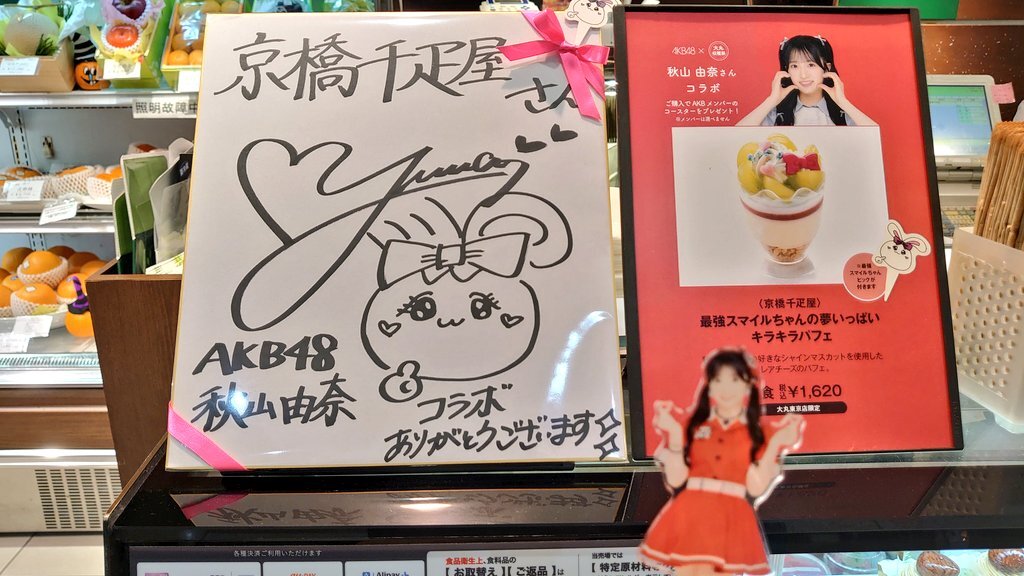 京橋千疋屋
さん
Yuna
AKB48
秋山由奈
コラボ
ありがとうございます
AKB48 ×
秋山 由奈さん
コラボ
ご購入でAKBメンバーの
コースターをプレゼント!
※メンバーは選べません
※最強
スマイルちゃん
ピックが
付きます
〈京橋千疋屋〉
最強スマイルちゃんの夢いっぱい
キラキラパフェ
好きなシャインマスカットを使用した
レアチーズのパフェ。
食 税込 ¥1,620
大丸東京店限定
照明故障中
各種決済ご利用いただけます
Alipay
食品衛生上、食料品の
【お取替え】【ご返品】は
当売場では
【特定原材料